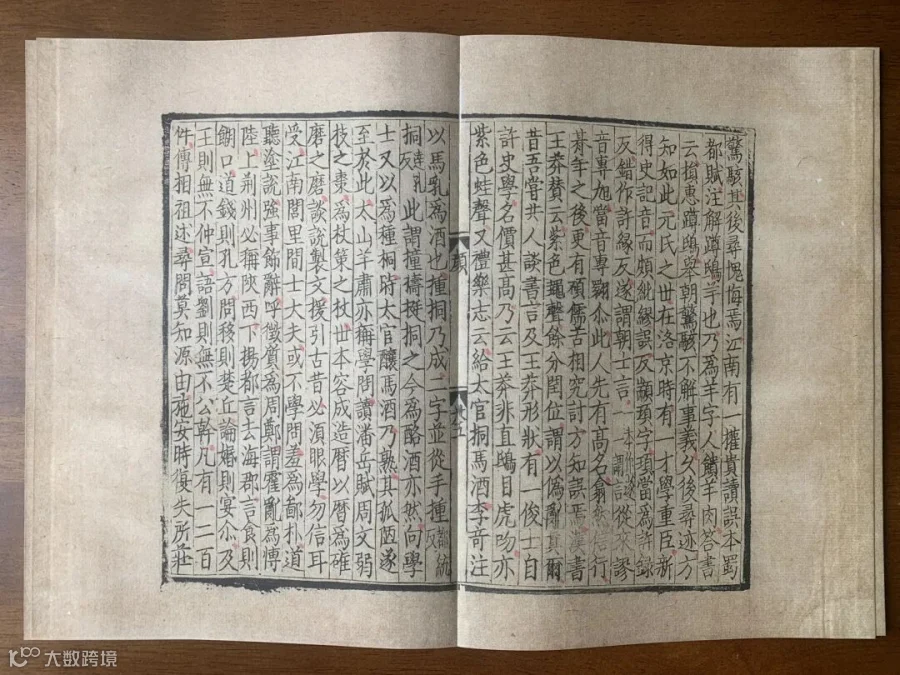 驚駭其後尋愧悔焉江南有一權貴讀誤本蜀
都賦注解蹲鴟芋也乃爲羊字人饋羊肉答書
云損惠蹲鴟舉朝驚駭不解事義久後尋迹方
知如此元氏之世在洛京時有一才學重臣新
得史記音而頗紕繆誤反顓頊字頊當爲許錄
反錯作許緣反遂謂朝士言從來謬
音專旭當音專翾尒此人先有高名翕然信行
朞年之後更有碩儒苦相究討方知誤焉漢書
王莽贊云紫色蠅聲餘分閏位謂以僞亂真爾
昔吾嘗共人談書言及王莽形狀有一俊士自
許史學名價甚高乃云王莽非直鴟目虎吻亦
紫色蛙聲又禮樂志云給太官挏馬酒李竒注
以馬乳爲酒也揰挏乃成二字並從手揰都統反
挏達孔反此謂撞擣挺挏之今爲酪酒亦然向學
士又以爲種桐時太官釀馬酒乃熟其孤陋遂
至於此太山羊肅亦稱學問讀潘岳賦周文弱
枝之棗爲杖策之杖世本容成造曆以曆爲碓
磨之磨談說製文援引古昔必須眼學勿信耳
受江南閭里間士大夫或不學問羞爲鄙朴道
聽塗說強事飾辭呼徵質爲周鄭謂霍亂爲博
陸上荆州必稱陜西下揚都言去海郡言食則
餬口道錢則孔方問移則楚丘論婚則宴尒及
王則無不仲宣語劉則無不公幹凡有一二百
件傳相祖述尋問莫知源由施安時復失所莊
大数跨境